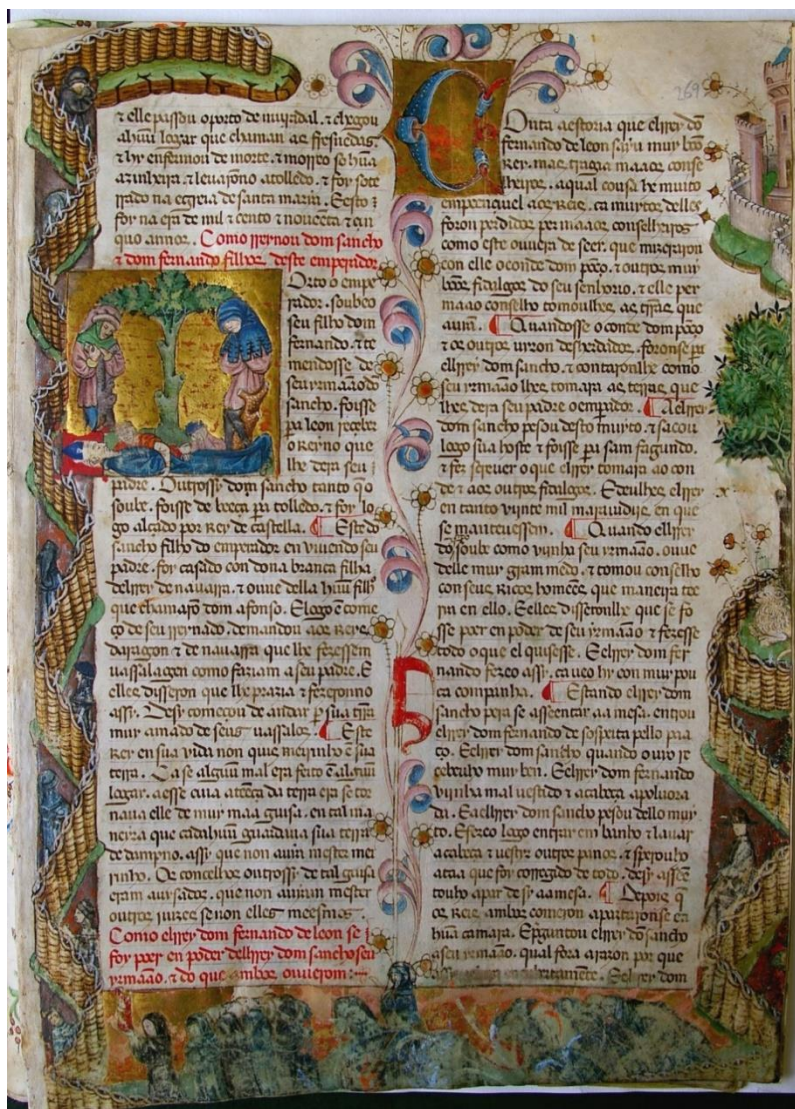 ⁊ elle passou oporto de muradal. ⁊ chegou
alhuũ logar que chaman as fresnedas.
⁊ hy enfermou de morte. ⁊ morreo so hũa
azinheira. ⁊ levarono atolledo. ⁊ foy sote
rrado na egreia de santa maria. E esto
foy na era de mil ⁊ cento ⁊ noveẽta ⁊ çin
quo annos. Como rreynou dom sancho
⁊ dom fernando filhos deste emperador
Orto o empe
rador. soubeo
seu filho dom
fernando. ⁊ te
mendosse de
seu yrmaão dõ
sancho. foisse
pa leon reçeber
o Reyno que
lhe dera seu
padre. Outrossy dom sancho tanto q̃ o
soube. foisse de beeça pa tolledo. ⁊ foy lo
go alçado por Rey de castella. Este dõ
sancho filho do emperador en vivendo seu
padre. foy casado con dona branca filha
delrrey de navarra. ⁊ ouve della huũ filho
que chamarõ dom afonso. E logo ẽ come
ço de seu rreynado. demandou aos Reys
daragon ⁊ de navarra que lhe fezessem
vassalagen como faziam a seu padre. E
elles disseron que lhe prazia ⁊ fezeronno
assy. Desy começou de andar per sua trra
muy amado de seus vassalos. Este
Rey en sua vida non quis meirinho ẽ sua
terra. Ca se alguũ mal era feito ẽ alguũ
logar. a esse cuia a teẽça da terra era se tor
nava elle de muy maa guisa. en tal ma
neyra que cada huũ guardava sua terra
de dampno. assy que non avia mester mei
rinho. Os conçelhos outrossy de tal guisa
eram avisados. que non avian mester
outros juizes se non elles meesmos.
Como elrrey dom fernando de leon se
foy poer en poder delrrey dom sancho seu
yrmaão. ⁊ do que ambos ouvierom
269
Onta a estoria que elrrey dõ
fernando de leon seria muy bõo
Rey. mas tragia maaos conse
lheiros. a qual cousa he muito
empeençivel aos Reis. ca muytos delles
foron perdidos per maaos conselheiros
como este ouvera de seer. que mizcraron
con elle o conde dom põço. ⁊ outros muy
bõos fidalgos do seu senhorio. ⁊ elle per
maao conselho tomoulhes as trras que
aviã. Quandosse o conde dom põço
⁊ os outros viron desherdados. foronse pa
elrrey dom sancho. ⁊ contaronlhe como
seu yrmaão lhes tomara as terras que
lhes dera seu padre o empador. A elrrey
dom sancho pesou desto muyto. ⁊ sacou
logo sua hoste ⁊ foisse pa sam fagundo.
⁊ fez screver o que elrrey tomara ao con
de ⁊ aos outros fidalgos. E deulhes elrrey
en tanto vinte mil maravidijs. en que
se mantevessem. Quando elrrey
dõ fo soube como viinha seu yrmaão. ouve
delle muy gram medo. ⁊ tomou conselho
con seus Ricos homeẽs. que maneira tee
ria en ello. E elles disseronlhe que se fo
sse poer en poder de seu yrmaão ⁊ fezesse
todo o que el quisesse. E elrrey dom fer
nando fezeo assy. ca veo hy con muy pou
ca companha. Estando elrrey dom
sancho pera se asseentar aa mesa. entrou
elrrey dom fernando de sospeita pello paa
ço. E elrrey dom sancho quando o vyo re
çebeuho muy ben. E elrrey dom fernando
viinha mal vestido ⁊ a cabeça apolvora
da. E a elrrey dom sancho pesou dello muy
to. E fezeo logo entrar em banho ⁊ lavar
a cabeça ⁊ vestir outros panos. ⁊ sperouho
ataa que foy corregido de todo. desy asseẽ
touho a par de sy aa mesa. Depois q̃
os Reis ambos comeron apartaronse en
hũa camara. E preguntou elrrey dõ sancho
a seu yrmaão. qual fora a razon por que
elrrey dom